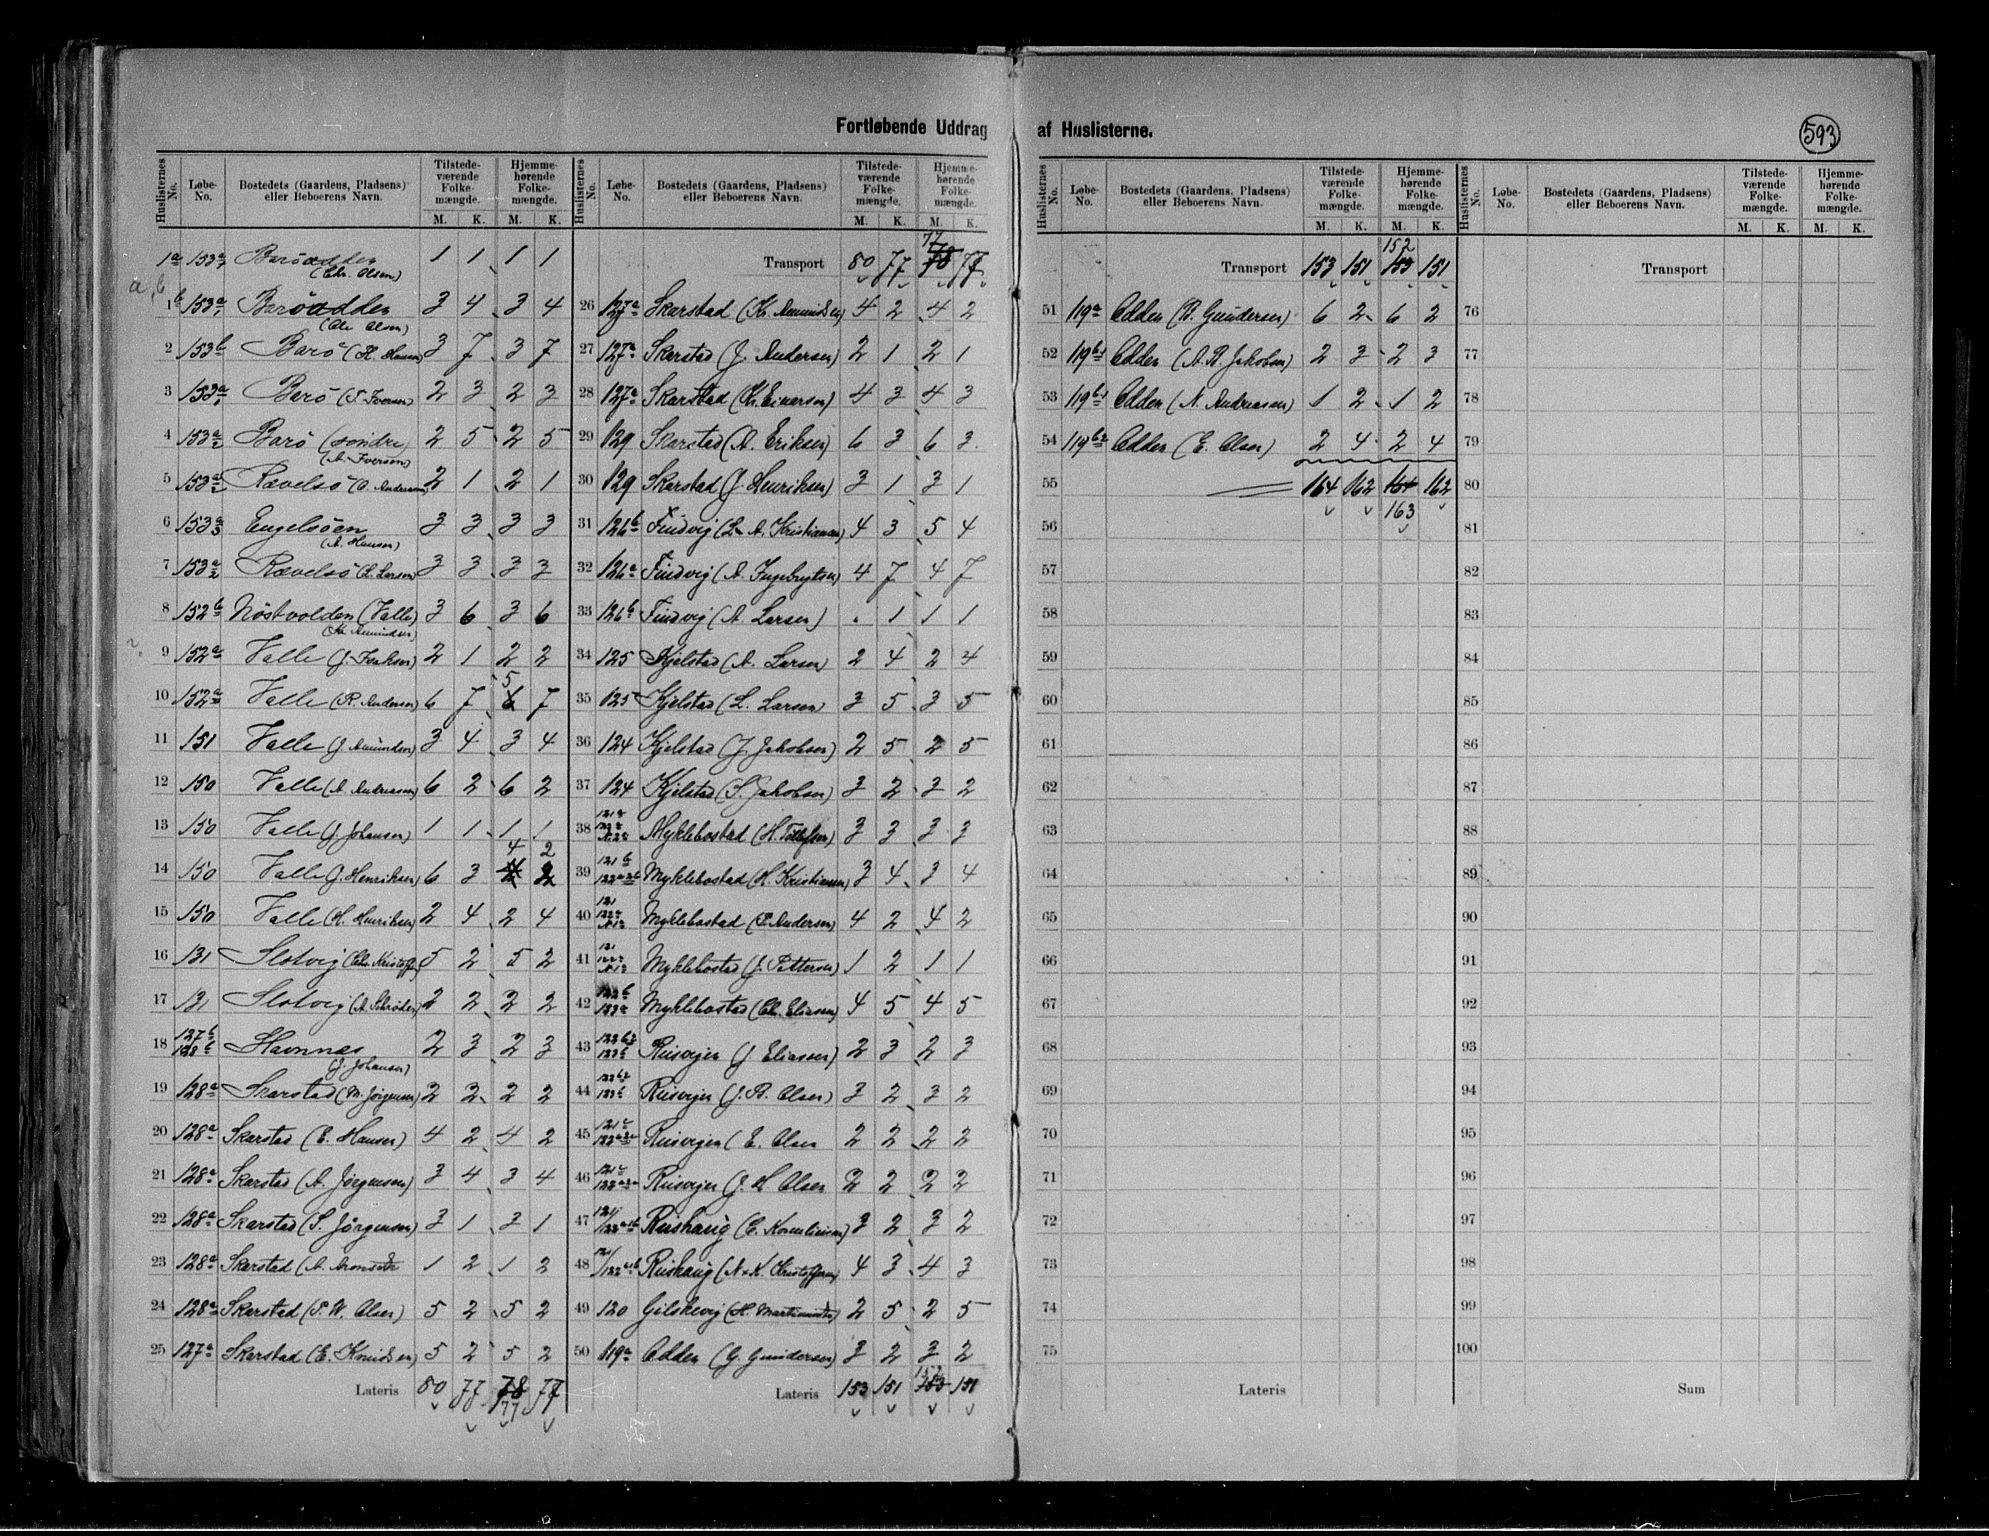 Fortløbende Uddrag af Huslisterne.
593
Huslisternes No. Løbe-No. Bostedets (Gaardens, Pladsens) eller Beboerens Navn. Tilstedeværende Folkemængde. M. K. Hjemmehørende Folkemængde. M. K.
1a 153a Baröodden (Chr. Olsen) 1 1 1 1
a, b
1b 153a Baröodden (Ole Olsen) 3 4 3 4
2 153b Barö (H. Hansen) 3 7 3 7
3 153a Barö (S. Iversen) 2 3 2 3
4 153a2 Barö (söndre) (A. Iversen) 2 5 2 5
5 153a2 Rævelsö (O. Andersen) 2 1 2 1
6 153a3 Engelsöen (A. Hansen) 3 3 3 3
7 153a2 Rævelsö (L. Larsen) 3 3 3 3
8 152b Nöstvolden (Valle) (Kr. Amundsen) 3 6 3 6
9 152a Valle (J. Isaksen) 2 1 2 2
10 152a Valle (R. Andersen) 6 7 5 6 7
11 151 Valle (J. Amundsen) 3 4 3 4
12 150 Valle (A. Andreasen) 6 2 6 2
13 150 Valle (J. Johansen) 1 1 1 1
14 150 Valle (J. Henriksen) 6 3 4 2
15 150 Valle (H. Henriksen) 2 4 2 4
16 131 Slotvig (Chr. Kristoffers) 5 2 5 2
17 131 Slotvig (A. Schrøder) 2 2 2 2
18 127b 128b Havnnes (J. Johansen) 2 3 2 3
19 128a Skarstad (M. Jörgensen) 2 2 2 2
20 128a Skarstad (E. Hansen) 4 2 4 2
21 128a Skarstad (A. Jörgensen) 3 4 3 4
22 128a Skarstad (S. Jörgensen) 3 1 3 1
23 128a Skarstad (A. Aronsdtr 1 2 1 2
24 128a Skarstad (P. W. Olsen) 5 2 5 2
25 127a Skarstad (E. Knudsen) 5 2 5 2
Lateris 80 77 78 77 77
Huslisternes No. Løbe-No. Bostedets (Gaardens, Pladsens) eller Beboerens Navn. Tilstedeværende Folkemængde. M. K. Hjemmehørende Folkemængde. M. K.
Transport 80 77 77 78 77
26 127a Skarstad (K. Amundsen) 4 2 4 2
27 127a Skarstad (J. Andersen) 2 1 2 1
28 127a Skarstad (Kr. Einersen) 4 3 4 3
29 129 Skarstad (A. Eriksen) 6 3 6 3
30 129 Skarstad (J. Henriksen) 3 1 3 1
31 126b Findvig (L. A. Kristiansen) 4 3 5 4
32 126a Findvig (A. Ingebrigtsen) 4 7 4 7
33 126b Findvig (A. Larsen) . 1 1 1
34 125 Kjelstad (A. Larsen) 2 4 2 4
35 125 Kjelstad (L. Larsen) 3 5 3 5
36 124 Kjelstad (J. Jakobsen) 2 5 2 5
37 124 Kjelstad (S. Jakobsen) 3 2 3 2
38 Myklebostad (H. Tollefsen) 3 3 3 3
39 121b Myklebostad (H. Kristiansen) 3 4 3 4
40 121 Myklebostad (P. Andersen) 4 2 4 2
41 121 Myklebostad (J. Pettersen) 1 2 1 1
42 Myklebostad (Chr. Eliasen) 4 5 4 5
43 Risvejen (J. Eliassen) 2 3 2 3
44 Risvejen (J. B. Olsen) 3 2 3 2
45 121c Risvejen (E. Olsen 2 2 2 2
46 121c Risvejen (J. H. Olsen 2 2 2 2
47 121 Rishaug (E. Korneliusen) 3 2 3 2
48 121 Rishaug (A. K. Kristoffersen) 4 3 4 3
49 120 Gilshevig (H. Martinusdtr) 2 5 2 5
50 119a Odden (G. Gundersen) 3 2 3 2
Lateris 153 151 152 153 151
Huslisternes No. Løbe-No. Bostedets (Gaardens, Pladsens) eller Beboerens Navn. Tilstedeværende Folkemængde. M. K. Hjemmehørende Folkemængde. M. K.
Transport 153 151 152 153 151
51 119a Odden (B. Gundersen) 6 2 6 2
52 119b1 Odden (A. B. Jakobsen) 2 3 2 3
53 119b1 Odden (N. Andreasen) 1 2 1 2
54 119b2 Odden (E. Olsen) 2 4 2 4
55 164 162 164 162
56 163
57
58
59
60
61
62
63
64
65
66
67
68
69
70
71
72
73
74
75
Lateris
Huslisternes No. Løbe-No. Bostedets (Gaardens, Pladsens) eller Beboerens Navn. Tilstedeværende Folkemængde. M. K. Hjemmehørende Folkemængde. M. K.
Transport
76
77
78
79
80
81
82
83
84
85
86
87
88
89
90
91
92
93
94
95
96
97
98
99
100
Sum